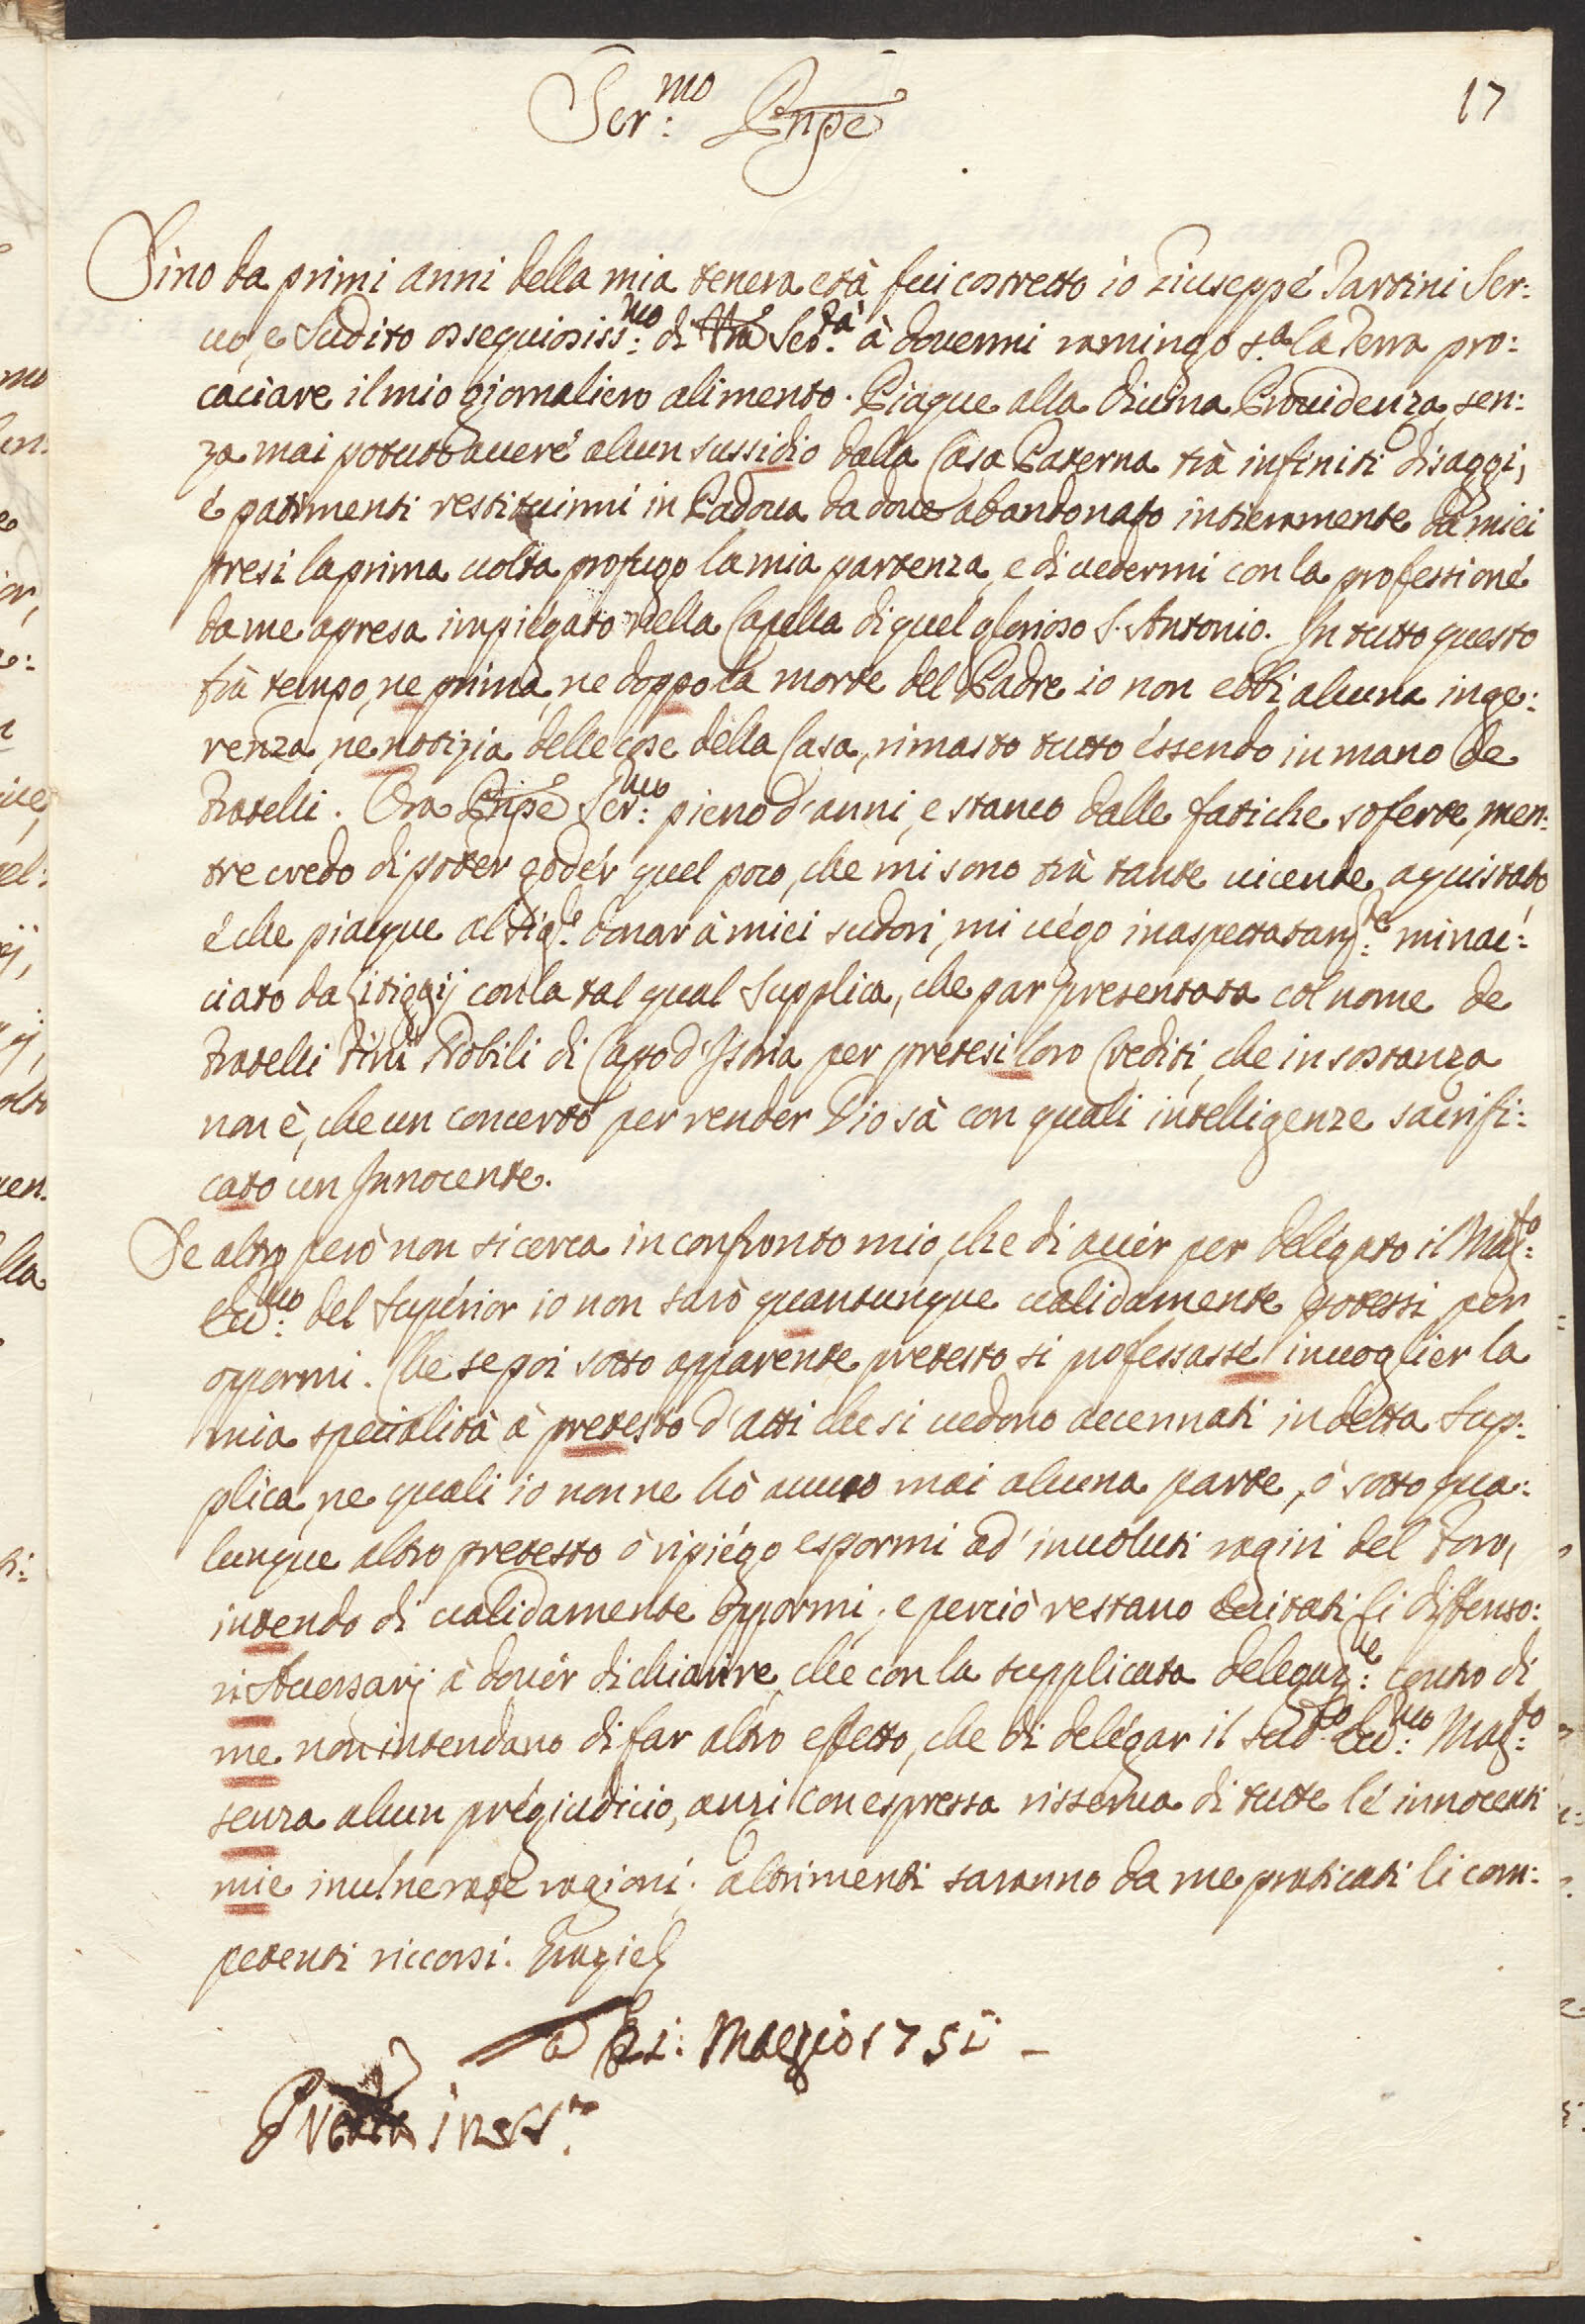 17
Ser:mo Pnpe
Sino da primi anni della mia tenera età fui costretto io Giuseppe Tartini Ser:
uo, e Sudito ossequiosiss:mo di Vra Ser:tà à douermi ramingo s.a la Terra pro:
caciare il mio giornaliero alimento. Piaque alla Diuina Prouidenza, sen:
za mai potuto auere alcun sussidio dalla Casa Paterna trà infiniti disaggi,
é patimenti restituirmi in Padoua da doue abandonato intieramente da miei
presi la prima uolta profugo la mia partenza, e di uedermi con la professione
da me apresa impiegato nella Capella di quel glorioso S. Antonio. In tutto questo
frà tempo, ne prima, ne doppo la morte del Padre io non ebbi alcuna inge:
renza, ne notizia delle cose della Casa, rimasto tutto éssendo in mano de
Fratelli. Ora Pnpe Ser:mo pieno d'anni, e stanco dalle fatiche soferte, men:
tre credo di poter godér quel poco, che mi sono trà tante uicende aquistato
é che piacque al Sig:e donar à miei sudori, mi uégo inaspettatam:te minac:
ciato da Litiggij con la tal qual Supplica, che par presentata col nome de
Fratelli Nobili di Capo d'Istria per pretesi loro Crediti, che in sostanza
non è, che un concerto per render Dio sà con quali intelligenze sacrifi:
cato un Innocente.
Se altro però non si cerca in confronto mio, che di auér per delégato il Mag:to
Ecc:mo del Supérior io non sarò quantunque ualidamente potessi per
oppormi. Che se poi sotto apparente pretesto si professasse inuoglier la
mia specialità à pretesto d'atti che si uedono accennati in detta Sup:
plica, ne quali io non ne hò auuto mai alcuna parte, ò sotto qua:
lunque altro pretesto ò ripiégo espormi ad inuoluti ragiri del Foro,
intendo di ualidamente oppormi; e perciò restano eccitati li diffenso:
ri Auersarij à douér dichiarire, che con la supplicata delegaz:ne contro di
me non intendano di far altro effetto, che di delégar il sud:to Ecc:mo Mag:to
senza alcun prégiudicio, anzi con espressa risserua di tutte lé innocenti
mie inuulnerate ragioni; altrimenti saranno da me praticati li com:
petenti riccorsi. Grazie
a 21: Marzio 1751